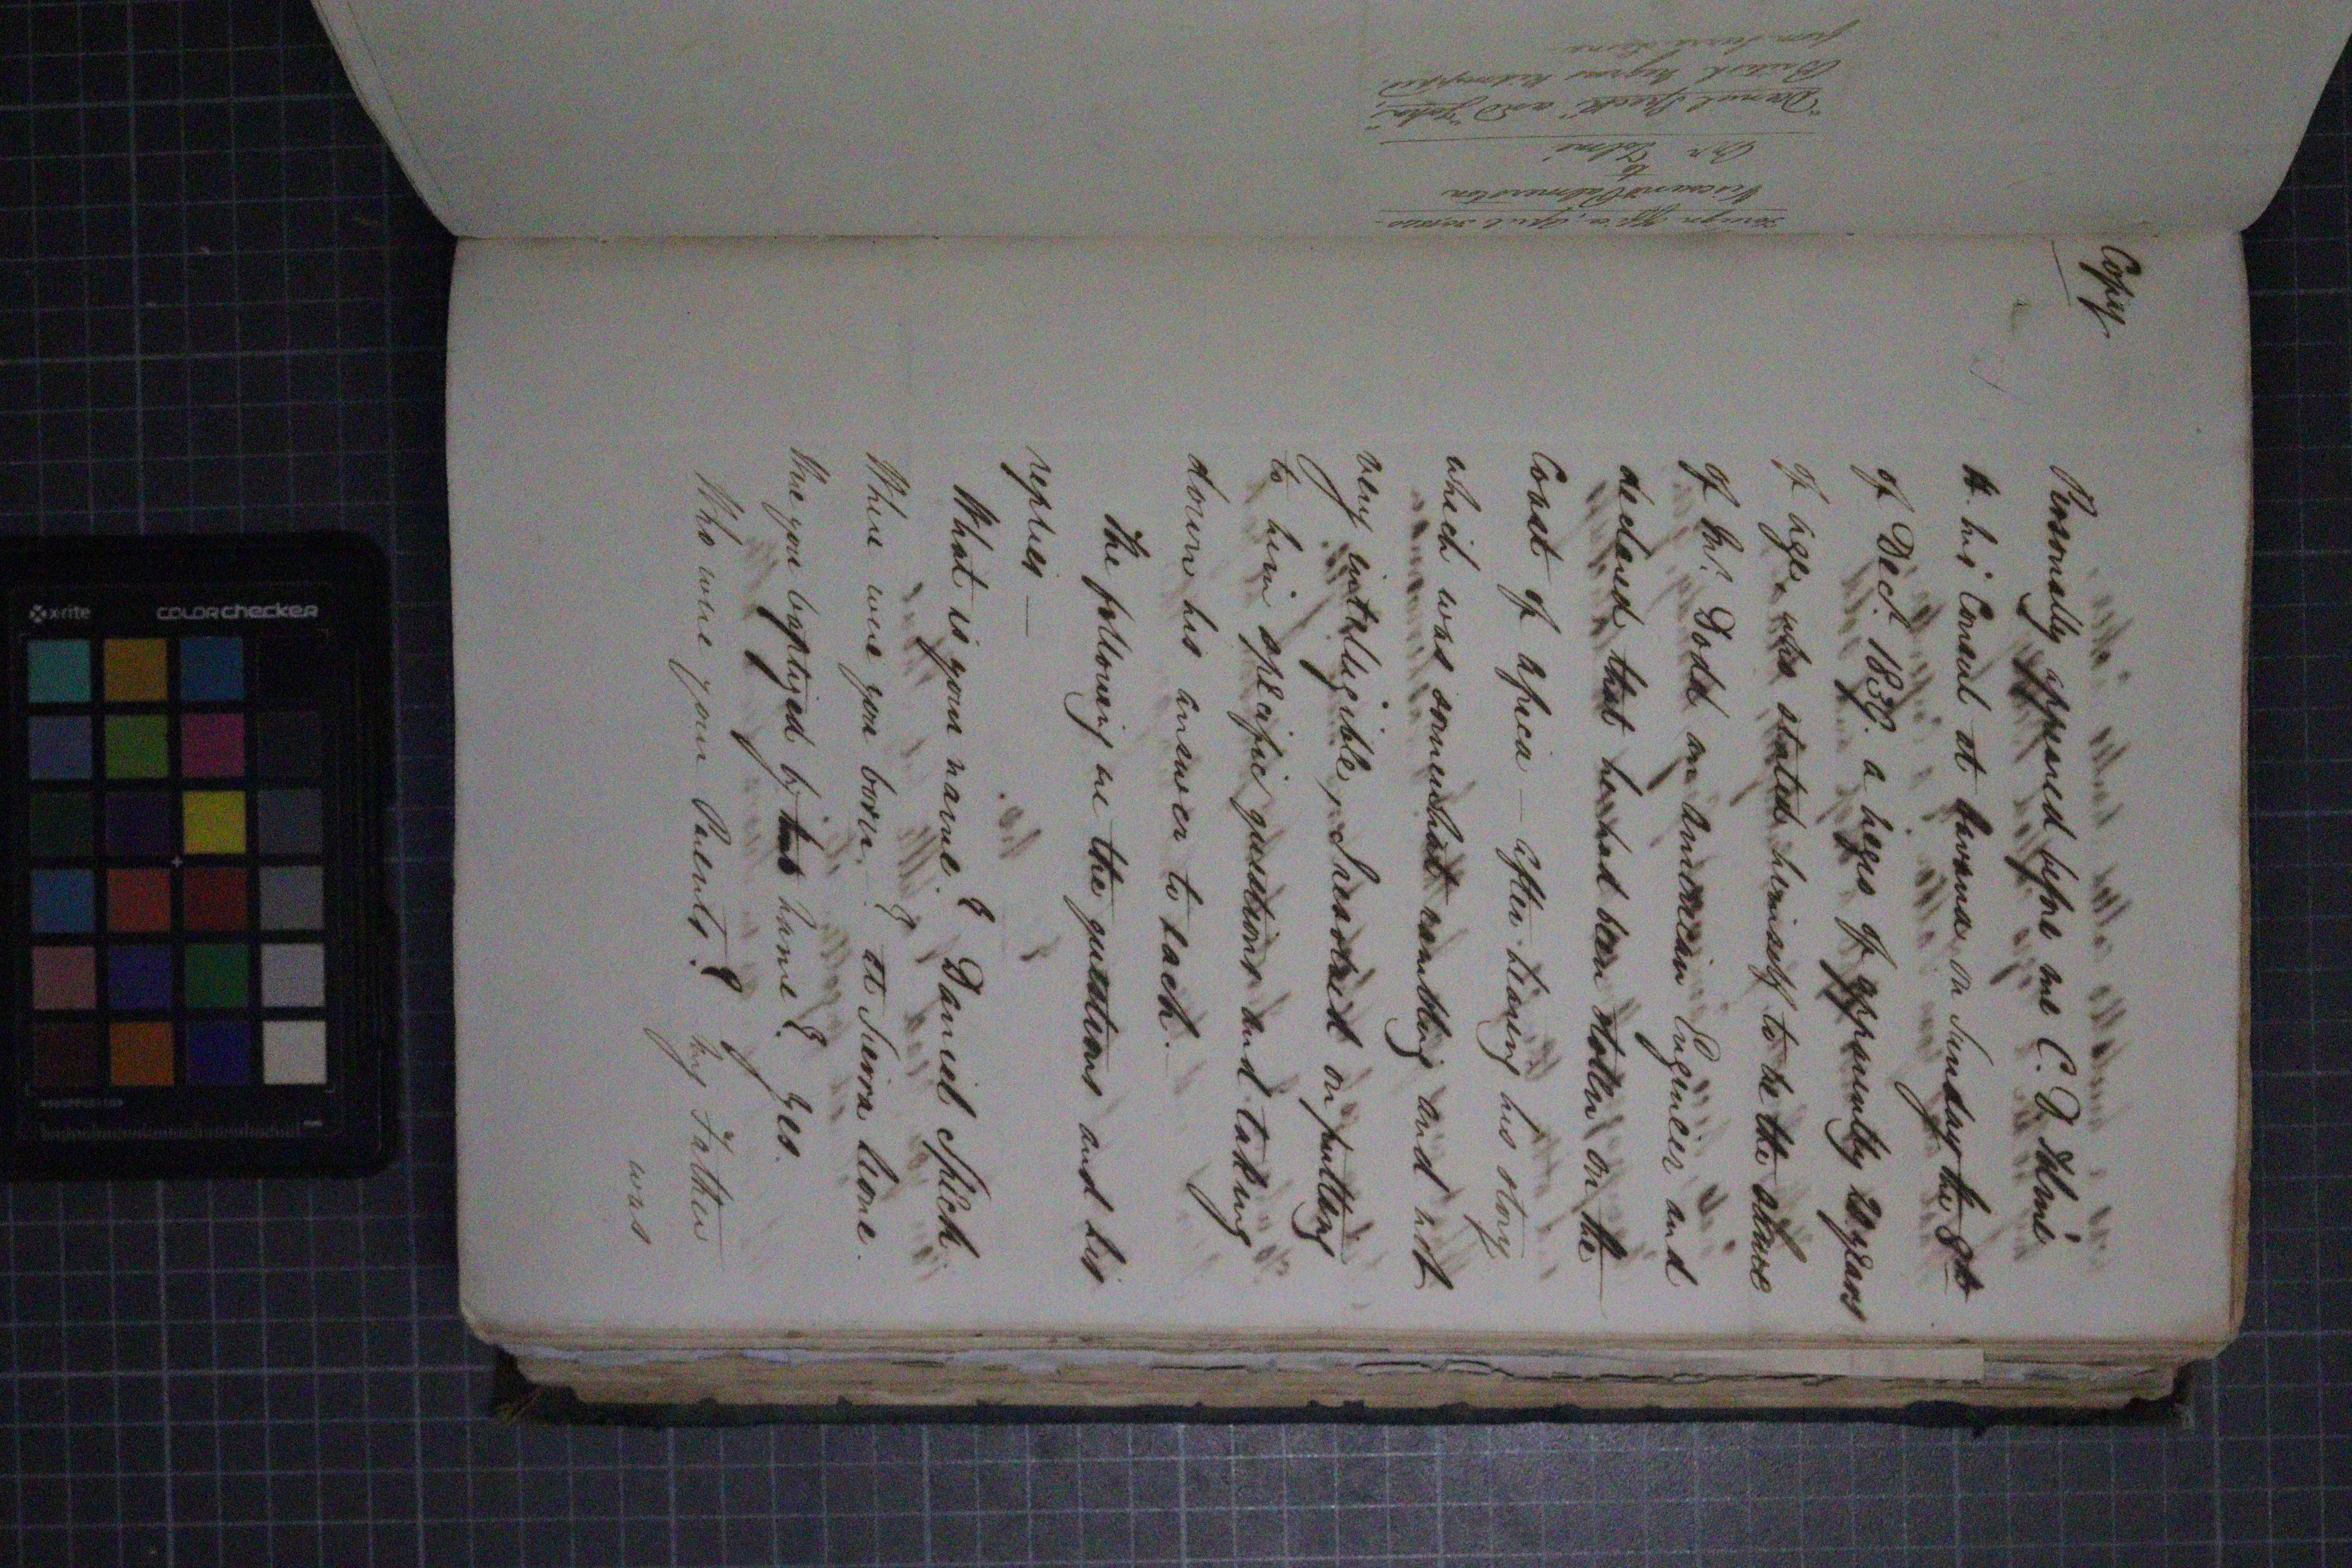 Copy
Personally appeared before me C. D. Tolmé
H. M.'s Consul at Havana, on Sunday the 8th
of Decr. 1839. a negro of apparently 20 years
of age, who stated himself to be the slave
of Mr. Dodd an American Engineer and
declared that he had been stolen on the
Coast of Africa — after hearing his story
which was somewhat rambling and not
very intelligible, I resolved on putting
to him specific questions and taking
down his answer to each.
The following are the questions and his
replies —
What is your name? Daniel Speck
Where were you born? at Sierra Leone.
Were you baptized by that name? Yes.
Who were your Parents? My Father
was
Foreign Office, April 30, 1840
Viscount Palmerston
to
Mr Tolmé
"Daniel Speck" and "John,"
British Negroes kidnapped
from Sierra Leone
x-rite
colorchecker